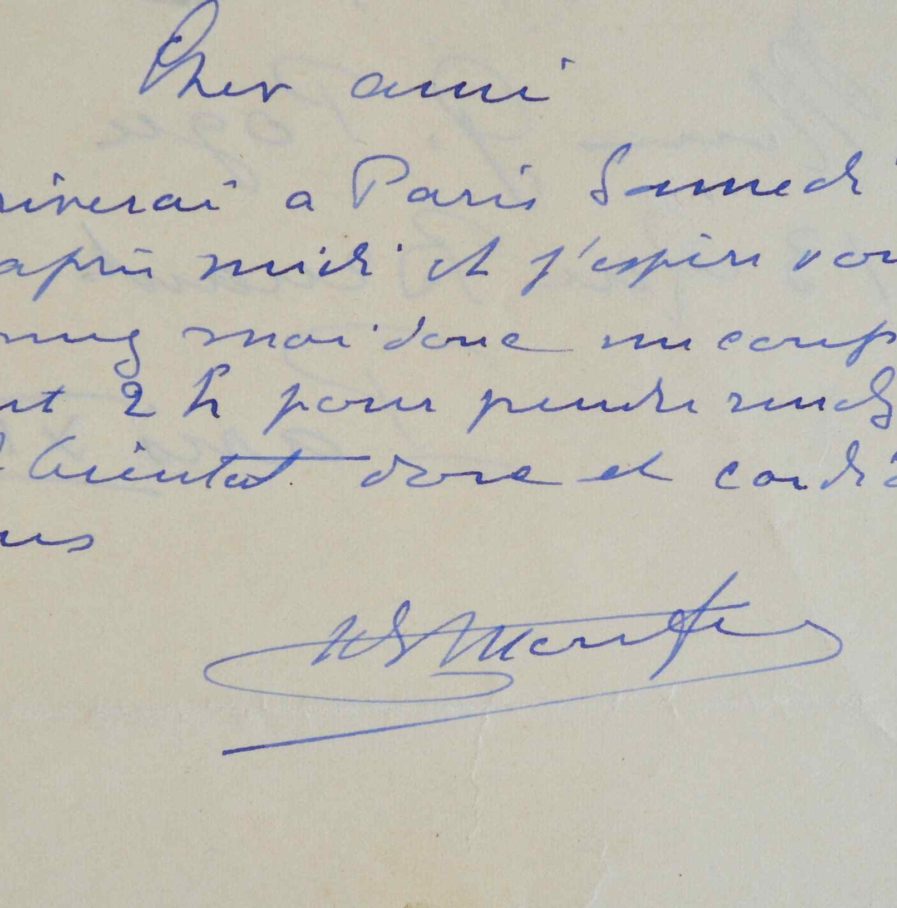 Cher ami
riverai a Paris Samedi
après midi et j'espère vou
moi donc un coup
nt 2 h pour prendre rendez
bientot donc et cordia
us